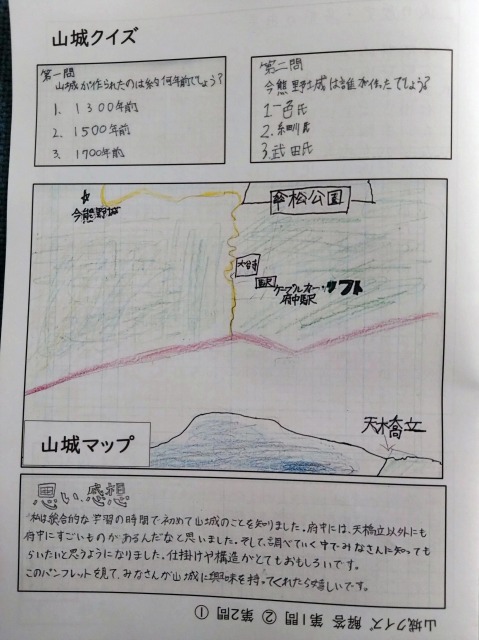 山城クイズ
第一問
山城が作られたのは約何年前でしょう?
1. 1300年前
2. 1500年前
3. 1700年前
第二問
今熊野城は誰が作ったでしょう?
1.一色氏
2.細川氏
3.武田氏
今熊野城
傘松公園
大谷寺
駅
ケーブルカー・リフト
府中駅
天橋立
山城マップ
思い感想
私は総合的な学習の時間で初めて山城のことを知りました。府中には、天橋立以外にも
府中にすごいものがあるんだなと思いました。そして、調べていく中でみなさんに知っても
らいたいと思うようになりました。仕掛けや構造がとてもおもしろいです。
このパンフレットを見て、みなさんが山城に興味を持ってくれたら嬉しいです。
山城クイズ 解答 第1問 ② 第2問 ①